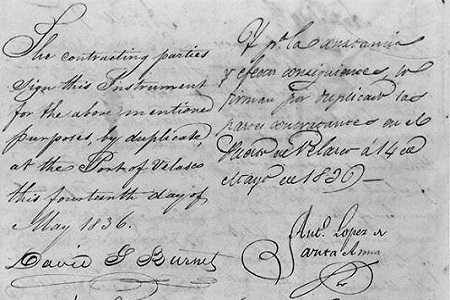 The contracting parties
sign this Instrument
for the above mentione
purposes, by duplicate,
at the Port of Velasco
this fourteenth day of
May 1836.
David G Burnet
Y pa. la constancia
y efectos consiguientes, lo
firman por duplicado las
partes contratantes en el
Puerto de Velasco á 14 de
Mayo de 1836
Anto. Lopez de
Santa Anna